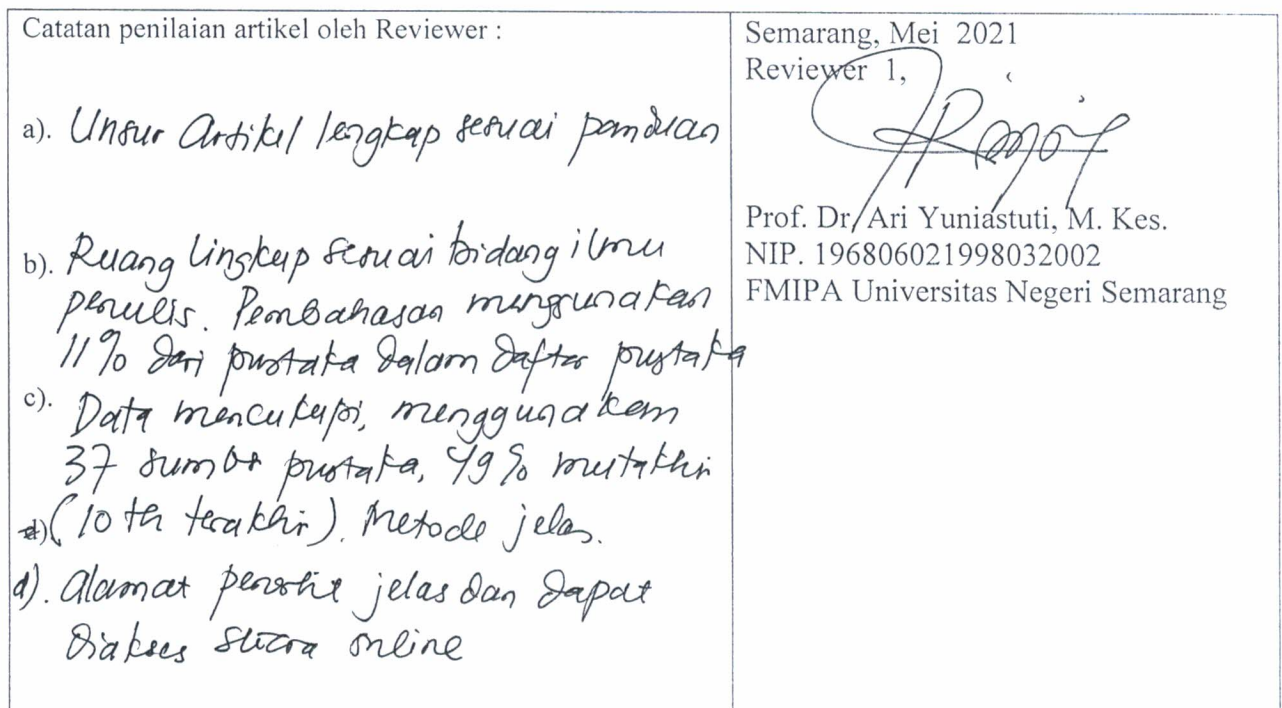 Catatan penilaian artikel oleh Reviewer :
a). Unsur Artikel lengkap sesuai panduan
b). Ruang lingkup sesuai bidang ilmu
penulis. Pembahasan menggunakan
11% dari pustaka dalam daftar pustaka
c). Data mencukupi, menggunakan
37 sumber pustaka, 49% mutakhir
d) (10 th terakhir). Metode jelas.
d). Alamat jelas dan dapat
diakses secara online
Semarang, Mei 2021
Reviewer 1,
Prof. Dr. Ari Yuniastuti, M. Kes.
NIP. 196806021998032002
FMIPA Universitas Negeri Semarang